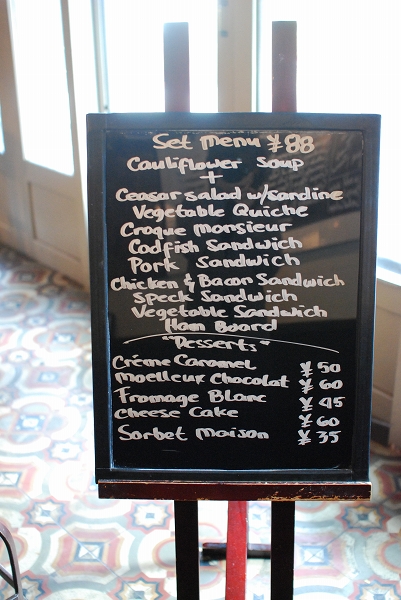 Set Menu ¥ 88
Cauliflower Soup
+
Ceasar salad w/sardine
Vegetable Quiche
Croque monsieur
Codfish Sandwich
Pork Sandwich
Chicken & Bacon Sandwich
Speck Sandwich
Vegetable Sandwich
Ham Board
"Desserts"
Créme Caramel ¥ 50
Moelleux Chocolat ¥ 60
Fromage Blanc ¥ 45
Cheese Cake ¥ 60
Sorbet Maison ¥ 35